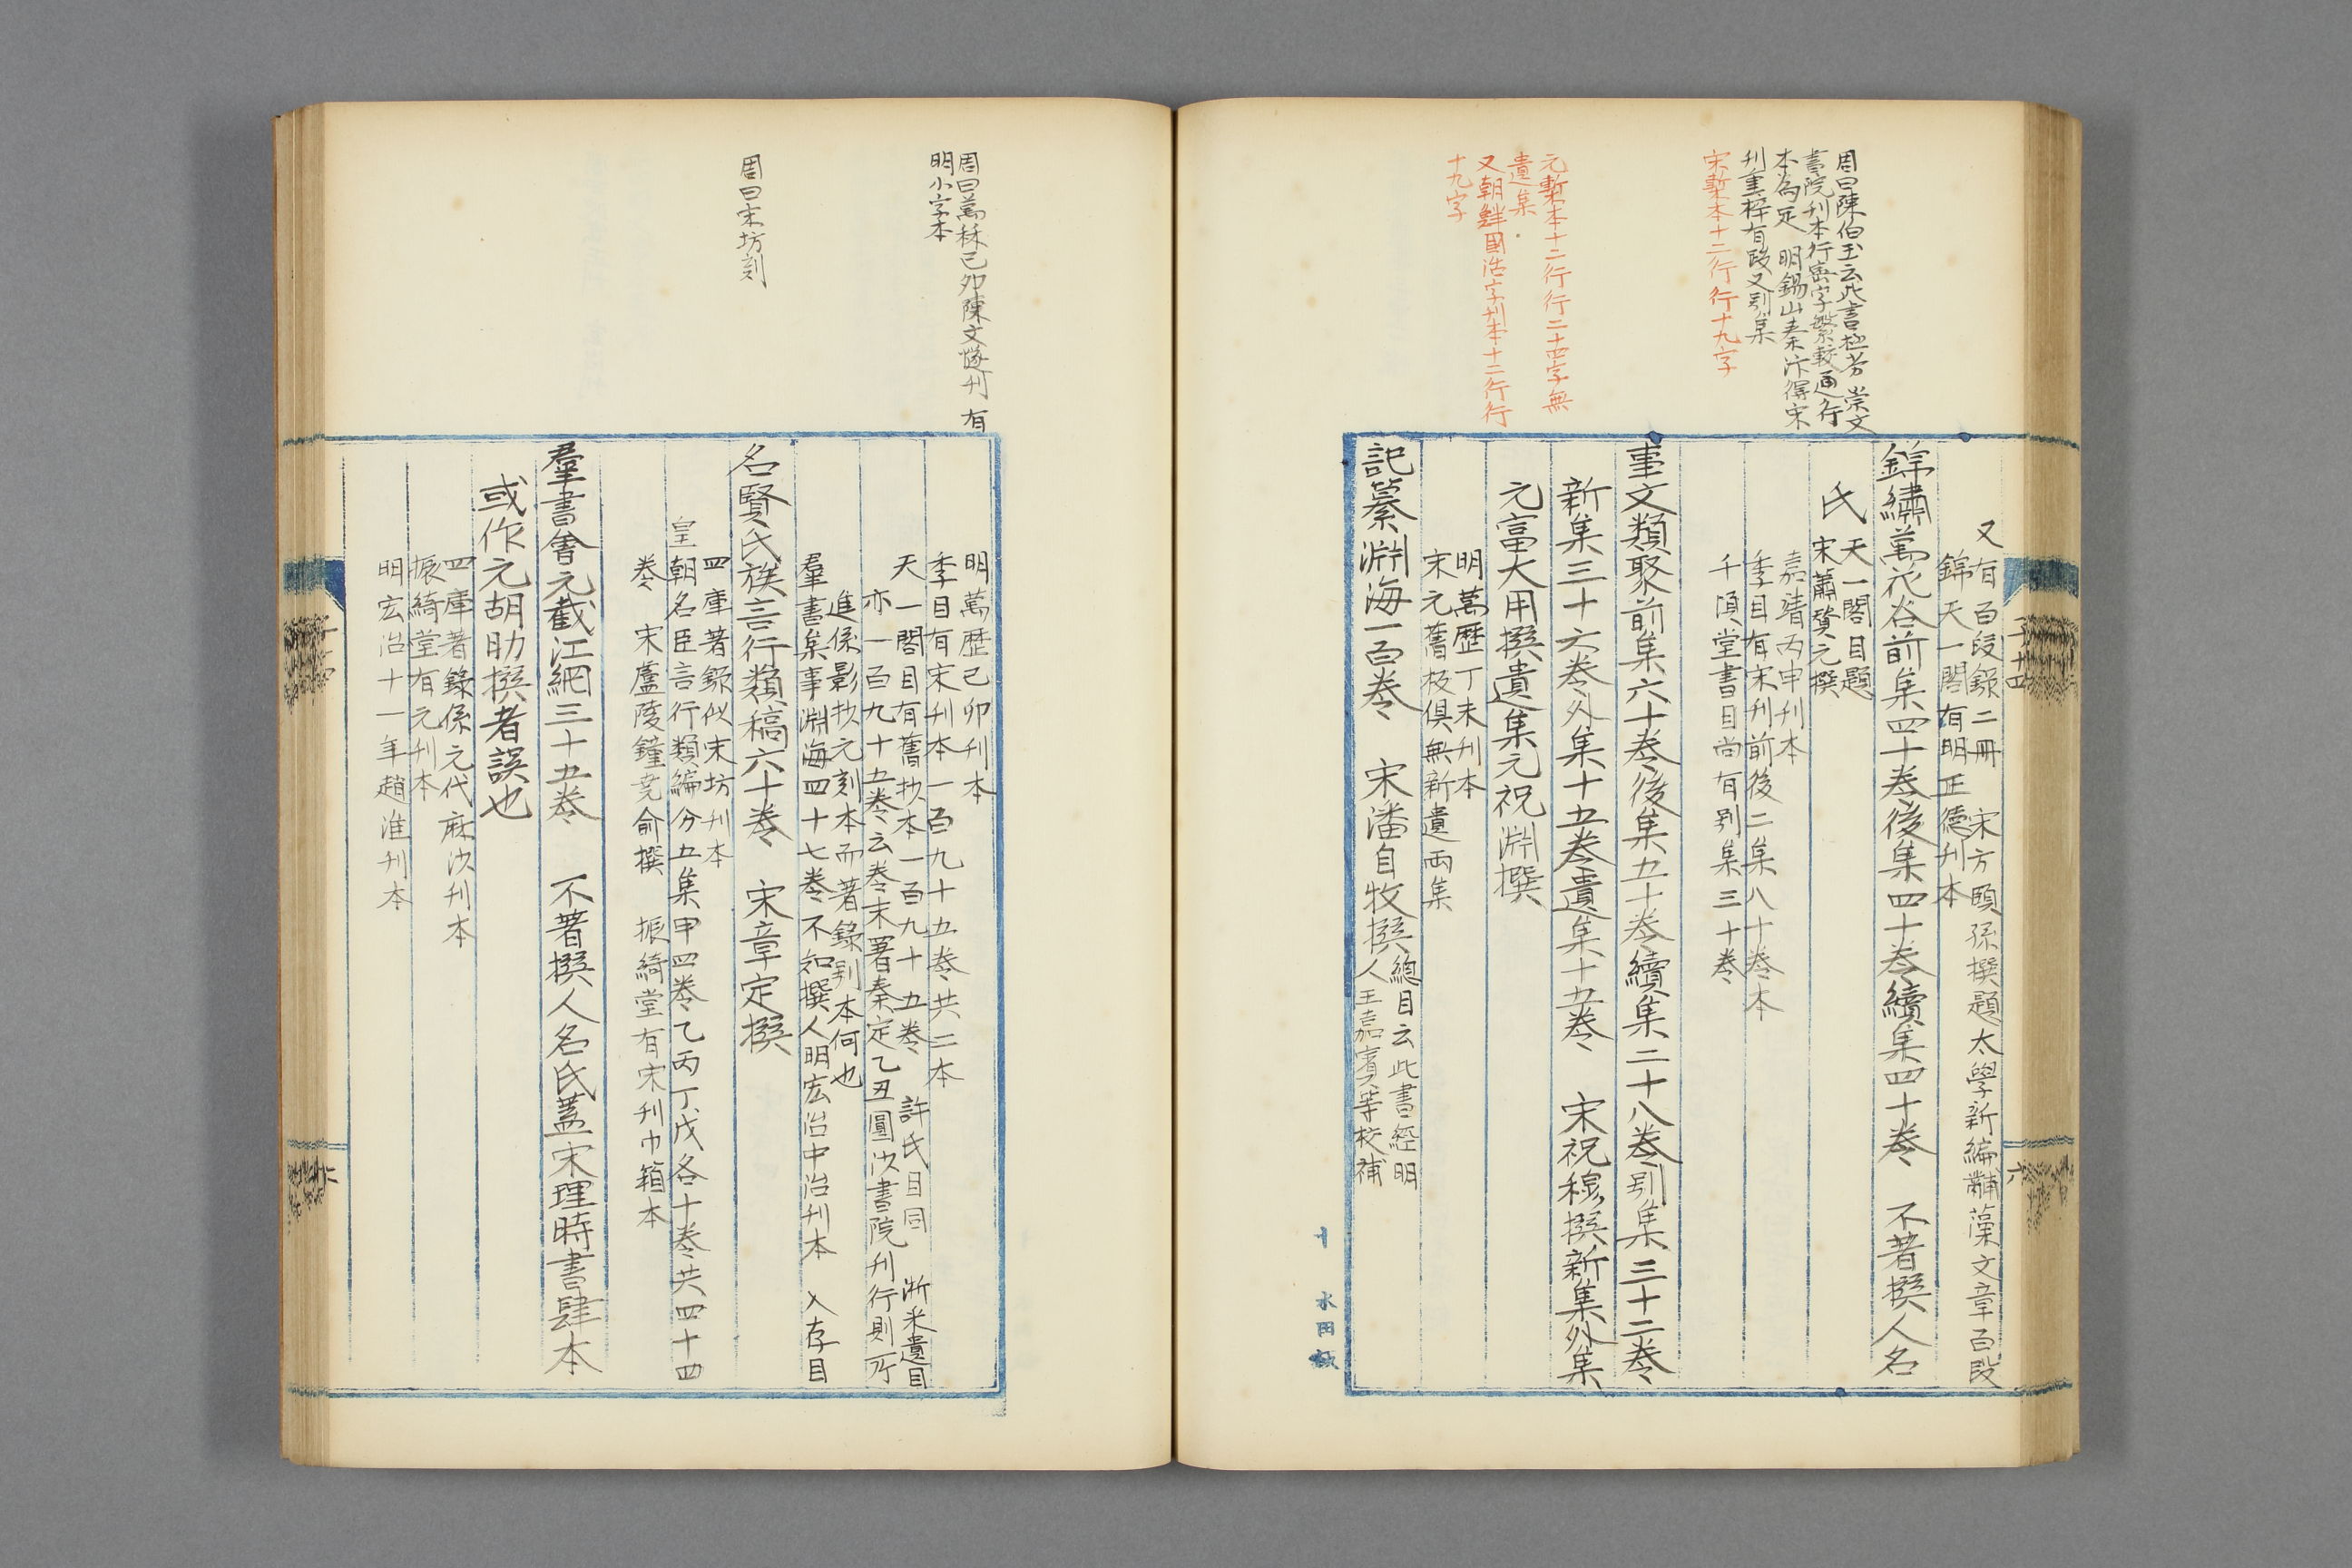 周曰陳伯玉云此書極劣 崇文
書院刊本行密字繁較通行
本為足 明錫山秦汴得宋
刊重梓有改又别集
宋槧本十二行行十九字
元槧本十二行行二十四字無
遺集
又朝鮮國活字刊本十二行行
十九字
又有百段錄二冊 宋方頤孫撰題太學新編黼藻文章百段
錦天一閣有明正德刊本
錦繡萬花谷前集四十卷後集四十卷續集四十卷 不著撰人名
氏 天一閣目題
宋蕭贊元撰
嘉靖丙申刊本
季目有宋刊前後二集八十卷本
千頃堂書目尚有别集三十卷
事文類聚前集六十卷後集五十卷續集二十八卷别集三十二卷
新集三十六卷外集十五卷遺集十五卷 宋祝穆撰新集外集
元富大用撰遺集元祝淵撰
明萬歷丁未刊本
宋元舊板俱無新遺兩集
記纂淵海一百卷 宋潘自牧撰 總目云此書經明
人王嘉賓等校補
子十四
六
水田
周曰萬秝己卯陳文燧刊 有
明小字本
周曰宋坊刻
明萬歷己卯刊本
季目有宋刊本一百九十五卷共二本
天一閣目有舊抄本一百九十五卷 許氏目同 浙采遺目
亦一百九十五卷云卷末署泰定乙丑圓沙書院刊行則所
進係影抄元刻本而著錄别本何也
羣書集事淵海四十七卷不知撰人明宏治中治刊本 入存目
名賢氏族言行類稿六十卷 宋章定撰
四庫著錄似宋坊刊本
皇朝名臣言行類編分五集甲四卷乙丙丁戊各十卷共四十四
卷 宋廬陵鐘堯俞撰 振綺堂有宋刊巾箱本
羣書會元截江網三十五卷 不著撰人名氏蓋宋理時書肆本
或作元胡助撰者誤也
四庫著錄係元代麻沙刊本
振綺堂有元刊本
明宏治十一年趙淮刊本